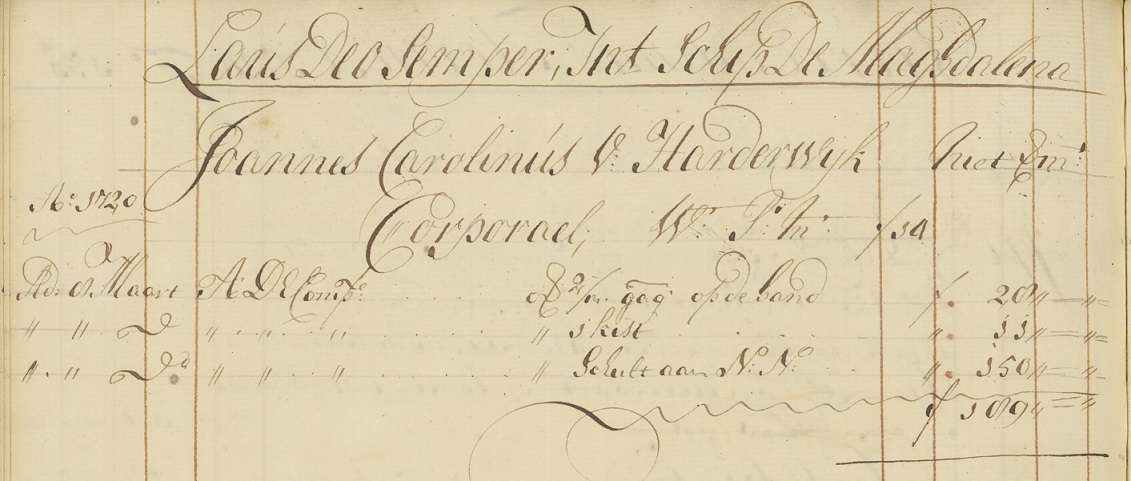 Laus Deo Semper, Int Schip De Magdalena
Joannes Carolinus V: Harderwyk niet
Ao: 1720
Corporael, W: P: m: f 14
Maart A DE Comp: 2/m: gag: op de hand f. 28 " — "
" " D " " " " 1 kist " 11 " — "
" " Do " " " " Schult aan N: N: " 150 " — "
f 189 " — "